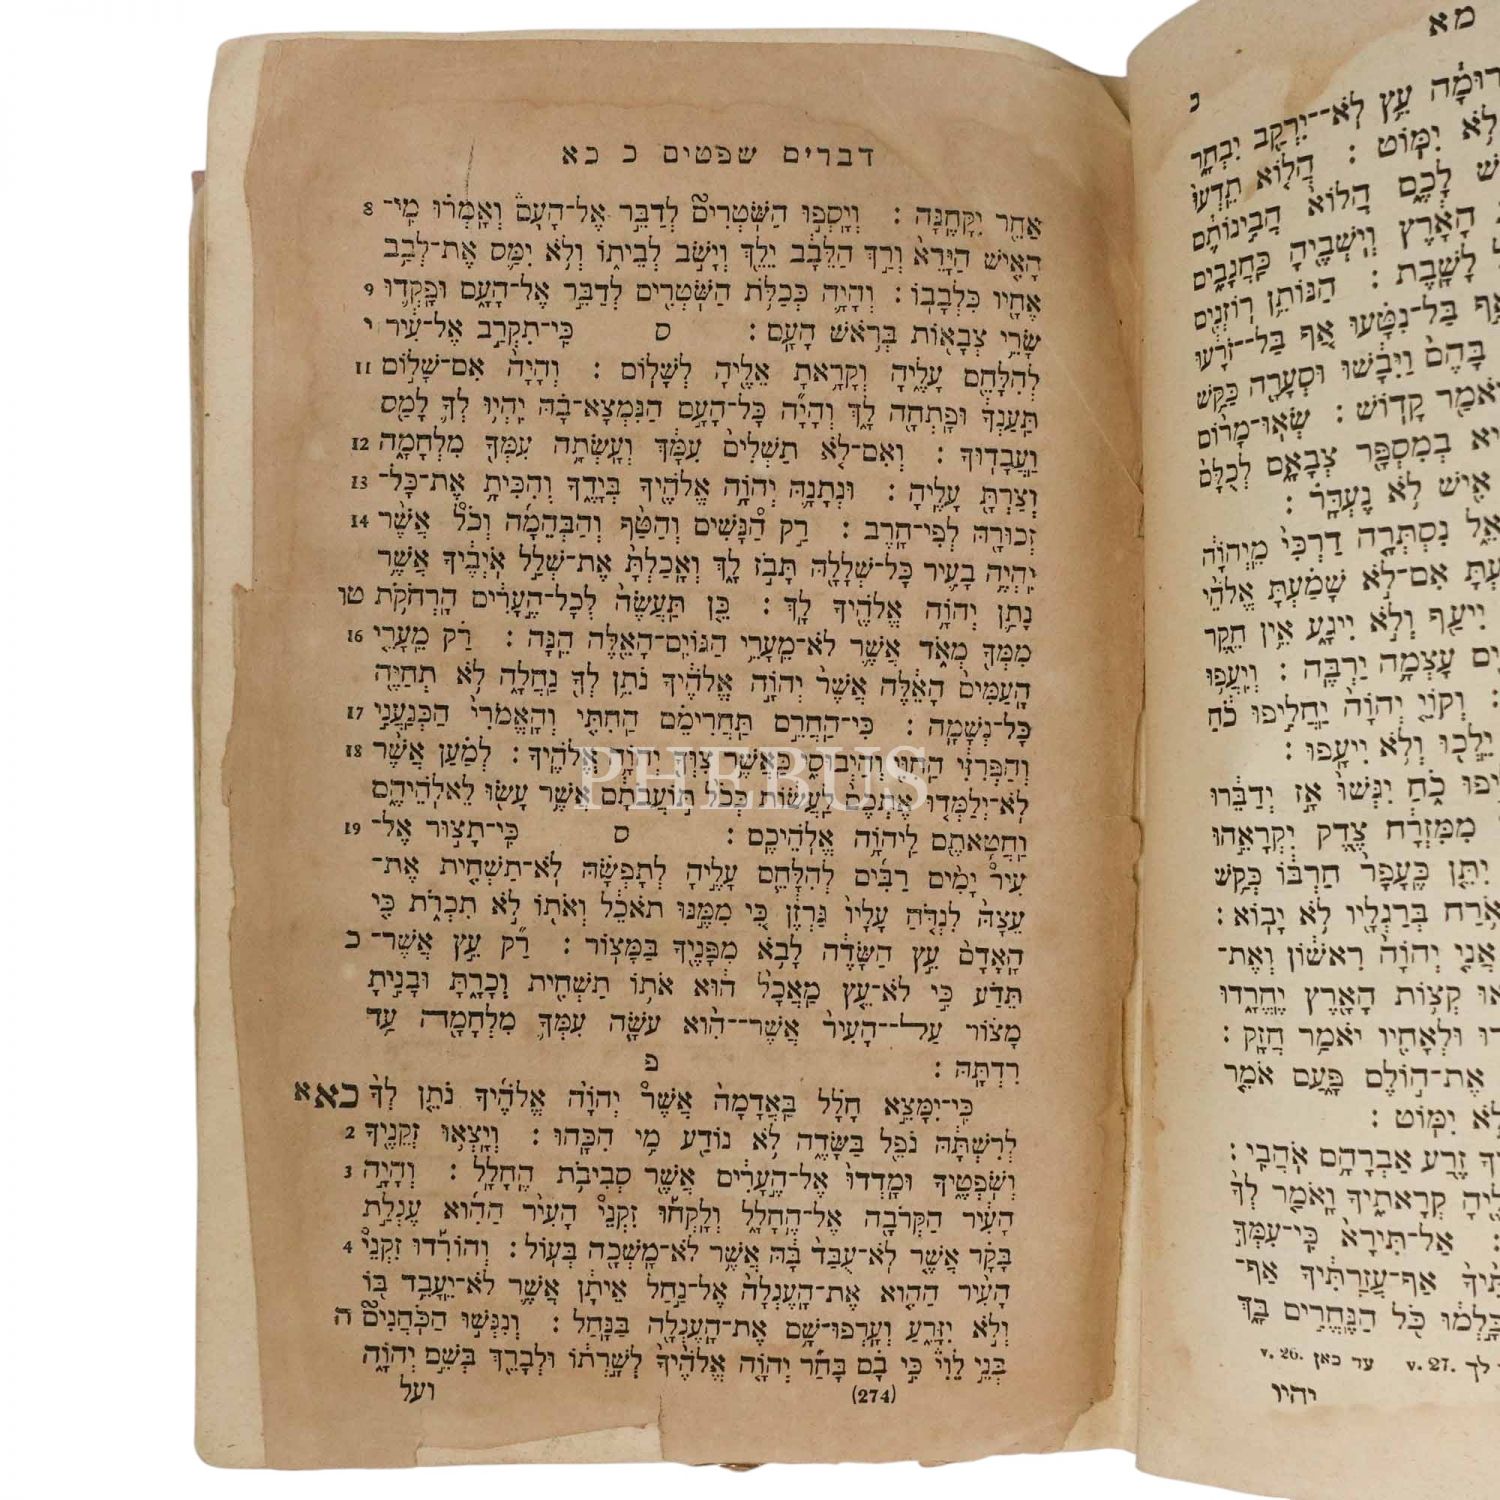 דברים שפטים כ כא
אַחֵ֖ר יִקָּחֶֽנָּה׃ וְיָסְפ֣וּ הַשֹּׁטְרִים֮ לְדַבֵּ֣ר אֶל־הָעָם֒ וְאָמְר֗וּ מִי־ 8
הָאִ֤ישׁ הַיָּרֵא֙ וְרַ֣ךְ הַלֵּבָ֔ב יֵלֵ֖ךְ וְיָשֹׁ֣ב לְבֵית֑וֹ וְלֹ֥א יִמַּ֛ס אֶת־לְבַ֥ב
אֶחָ֖יו כִּלְבָבֽוֹ׃ וְהָיָ֛ה כְּכַלֹּ֥ת הַשֹּׁטְרִ֖ים לְדַבֵּ֣ר אֶל־הָעָ֑ם וּפָ֥קְד֛וּ 9
שָׂרֵ֥י צְבָא֖וֹת בְּרֹ֥אשׁ הָעָֽם׃ ס כִּֽי־תִקְרַ֣ב אֶל־עִ֔יר י
לְהִלָּחֵ֖ם עָלֶ֑יהָ וְקָרָ֥אתָ אֵלֶ֖יהָ לְשָׁלֽוֹם׃ וְהָיָה֙ אִם־שָׁל֣וֹם 11
תַּֽעַנְךָ֔ וּפָתְחָ֖ה לָ֑ךְ וְהָיָ֞ה כָּל־הָעָ֣ם הַנִּמְצָא־בָ֗הּ יִהְי֥וּ לְךָ֛ לָמַ֖ס
וַעֲבָדֽוּךָ׃ וְאִם־לֹ֤א תַשְׁלִים֙ עִמָּ֔ךְ וְעָשְׂתָ֥ה עִמְּךָ֖ מִלְחָמָ֑ה 12
וְצַרְתָּ֖ עָלֶֽיהָ׃ וּנְתָנָ֛הּ יְהוָֹ֥ה אֱלֹהֶ֖יךָ בְּיָדֶ֑ךָ וְהִכִּיתָ֥ אֶת־כָּל־ 13
זְכוּרָ֖הּ לְפִי־חָֽרֶב׃ רַ֣ק הַ֠נָּשִׁים וְהַטַּ֨ף וְהַבְּהֵמָ֜ה וְכֹל֩ אֲשֶׁ֨ר 14
יִהְיֶ֥ה בָעִ֛יר כָּל־שְׁלָלָ֖הּ תָּבֹ֣ז לָ֑ךְ וְאָֽכַלְתָּ֙ אֶת־שְׁלַ֣ל אֹיְבֶ֔יךָ אֲשֶׁ֥ר
נָתַ֛ן יְהוָֹ֥ה אֱלֹהֶ֖יךָ לָֽךְ׃ כֵּ֤ן תַּעֲשֶׂה֙ לְכָל־הֶ֣עָרִ֔ים הָרְחֹקֹ֥ת טו
מִמְּךָ֖ מְאֹ֑ד אֲשֶׁ֛ר לֹא־מֵעָרֵ֥י הַגּוֹיִֽם־הָאֵ֖לֶּה הֵֽנָּה׃ רַ֗ק מֵעָרֵ֤י 16
הָֽעַמִּים֙ הָאֵ֔לֶּה אֲשֶׁר֙ יְהוָֹ֣ה אֱלֹהֶ֔יךָ נֹתֵ֥ן לְךָ֖ נַחֲלָ֑ה לֹ֥א תְחַיֶּ֖ה
כָּל־נְשָׁמָֽה׃ כִּי־הַחֲרֵ֣ם תַּחֲרִימֵ֗ם הַחִתִּ֤י וְהָאֱמֹרִי֙ הַכְּנַעֲנִ֣י 17
וְהַפְּרִזִּ֔י הַחִוִּ֖י וְהַיְבוּסִ֑י כַּאֲשֶׁ֥ר צִוְּךָ֖ יְהוָֹ֥ה אֱלֹהֶֽיךָ׃ לְמַ֗עַן אֲשֶׁ֨ר 18
לֹֽא־יְלַמְּד֤וּ אֶתְכֶם֙ לַעֲשׂ֔וֹת כְּכֹל֙ תּוֹעֲבֹתָ֔ם אֲשֶׁ֥ר עָשׂ֖וּ לֵאלֹהֵיהֶ֑ם
וַחֲטָאתֶ֖ם לַיהוָֹ֥ה אֱלֹהֵיכֶֽם׃ ס כִּֽי־תָצ֣וּר אֶל־ 19
עִיר֩ יָמִ֨ים רַבִּ֜ים לְהִלָּחֵ֧ם עָלֶ֣יהָ לְתָפְשָׂ֗הּ לֹֽא־תַשְׁחִ֤ית אֶת־
עֵצָהּ֙ לִנְדֹּ֤חַ עָלָיו֙ גַּרְזֶ֔ן כִּ֚י מִמֶּ֣נּוּ תֹאכֵ֔ל וְאֹת֖וֹ לֹ֣א תִכְרֹ֑ת כִּ֤י
הָֽאָדָם֙ עֵ֣ץ הַשָּׂדֶ֔ה לָבֹ֥א מִפָּנֶ֖יךָ בַּמָּצֽוֹר׃ רַ֞ק עֵ֣ץ אֲשֶׁר־ כ
תֵּדַ֗ע כִּֽי לֹא־עֵ֤ץ מַאֲכָל֙ ה֔וּא אֹת֥וֹ תַשְׁחִ֖ית וְכָרָ֑תָּ וּבָנִ֣יתָ
מָצ֗וֹר עַל־הָעִיר֙ אֲשֶׁר־הִ֨וא עֹשָׂ֧ה עִמְּךָ֛ מִלְחָמָ֖ה עַ֥ד
רִדְתָּֽהּ׃ פ
כִּי־יִמָּצֵ֣א חָלָ֗ל בָּאֲדָמָה֙ אֲשֶׁר֩ יְהוָֹ֨ה אֱלֹהֶ֜יךָ נֹתֵ֤ן לְךָ֙ כא א
לְרִשְׁתָּ֔הּ נֹפֵ֖ל בַּשָּׂדֶ֑ה לֹ֥א נוֹדַ֖ע מִ֥י הִכָּֽהוּ׃ וְיָצְא֥וּ זְקֵנֶ֖יךָ 2
וְשֹׁפְטֶ֑יךָ וּמָדְדוּ֙ אֶל־הֶ֣עָרִ֔ים אֲשֶׁ֖ר סְבִיבֹ֥ת הֶחָלָֽל׃ וְהָיָ֣ה 3
הָעִ֔יר הַקְּרֹבָ֖ה אֶל־הֶחָלָ֑ל וְלָֽקְח֡וּ זִקְנֵי֩ הָעִ֨יר הַהִ֜וא עֶגְלַ֣ת
בָּקָ֗ר אֲשֶׁ֤ר לֹֽא־עֻבַּד֙ בָּ֔הּ אֲשֶׁ֥ר לֹא־מָשְׁכָ֖ה בְּעֹֽל׃ וְהוֹרִ֡דוּ זִקְנֵי֩ 4
הָעִ֨יר הַהִ֤וא אֶת־הָֽעֶגְלָה֙ אֶל־נַ֣חַל אֵיתָ֔ן אֲשֶׁ֛ר לֹא־יֵעָבֵ֥ד בּ֖וֹ
וְלֹ֣א יִזָּרֵ֑עַ וְעָֽרְפוּ־שָׁ֥ם אֶת־הָעֶגְלָ֖ה בַּנָּֽחַל׃ וְנִגְּשׁ֣וּ הַכֹּהֲנִים֮ ה
בְּנֵ֣י לֵוִי֒ כִּ֣י בָ֗ם בָּחַ֞ר יְהוָֹ֤ה אֱלֹהֶ֙יךָ֙ לְשָׁ֣רְת֔וֹ וּלְבָרֵ֖ךְ בְּשֵׁ֣ם יְהוָֹ֑ה
(274) ועל
PHEBUS
מא
עֵ֥ץ לֹא־יִרְקַ֖ב יִבְחָ֑ר כ
לֹ֥א יִמּֽוֹט׃ הֲל֤וֹא תֵֽדְעוּ֙
לָכֶ֑ם הֲלוֹא֙ הֲבִ֣ינוֹתֶ֔ם
הָאָ֔רֶץ וְיֹשְׁבֶ֖יהָ כַּחֲגָבִ֑ים
לָשָֽׁבֶת׃ הַנּוֹתֵ֥ן רוֹזְנִ֖ים
בַּל־נִטָּ֗עוּ אַ֚ף בַּל־זֹרָ֔עוּ
בָּהֶם֙ וַיִּבָ֔שׁוּ וּסְעָרָ֖ה כַּקַּ֥שׁ
קָדֽוֹשׁ׃ שְׂאוּ־מָר֨וֹם
בְּמִסְפָּ֖ר צְבָאָ֑ם לְכֻלָּם֙
אִ֖ישׁ לֹ֥א נֶעְדָּֽר׃
נִסְתְּרָ֤ה דַרְכִּי֙ מֵֽיְהוָֹ֔ה
אִם־לֹ֣א שָׁמַ֗עְתָּ אֱלֹהֵ֨י
יִיעַ֖ף וְלֹ֣א יִיגָ֑ע אֵ֥ין חֵ֖קֶר
עָצְמָ֥ה יַרְבֶּֽה׃ וְיִֽעֲפ֥וּ
וְקוֹיֵ֤ יְהוָֹה֙ יַחֲלִ֣יפוּ כֹ֔חַ
יֵלְכ֖וּ וְלֹ֥א יִיעָֽפוּ׃
כֹ֑חַ יִגְּשׁוּ֙ אָ֣ז יְדַבֵּ֔רוּ
מִמִּזְרָ֔ח צֶ֖דֶק יִקְרָאֵ֣הוּ
יִתֵּ֤ן כֶּֽעָפָר֙ חַרְבּ֔וֹ כְּקַ֥שׁ
אֹ֥רַח בְּרַגְלָ֖יו לֹ֥א יָבֽוֹא׃
אֲנִ֤י יְהוָֹה֙ רִאשׁ֔וֹן וְאֶת־
קְצ֥וֹת הָאָ֖רֶץ יֶחֱרָ֑דוּ
וּלְאָחִ֖יו יֹאמַ֥ר חֲזָֽק׃
אֶת־ה֣וֹלֶם פָּ֑עַם אֹמֵ֤ר
לֹ֥א יִמּֽוֹט׃
זֶ֖רַע אַבְרָהָ֥ם אֹהֲבִֽי׃
קְרָאתִ֑יךָ וָאֹ֤מַר לְךָ֙
אַל־תִּירָא֙ כִּ֣י־עִמְּךָ֔
אַף־עֲזַרְתִּ֔יךָ אַף־
כֹּ֖ל הַנֶּחֱרִ֣ים בָּ֑ךְ
v. 26. עד כאן v. 27. לך
יהיו